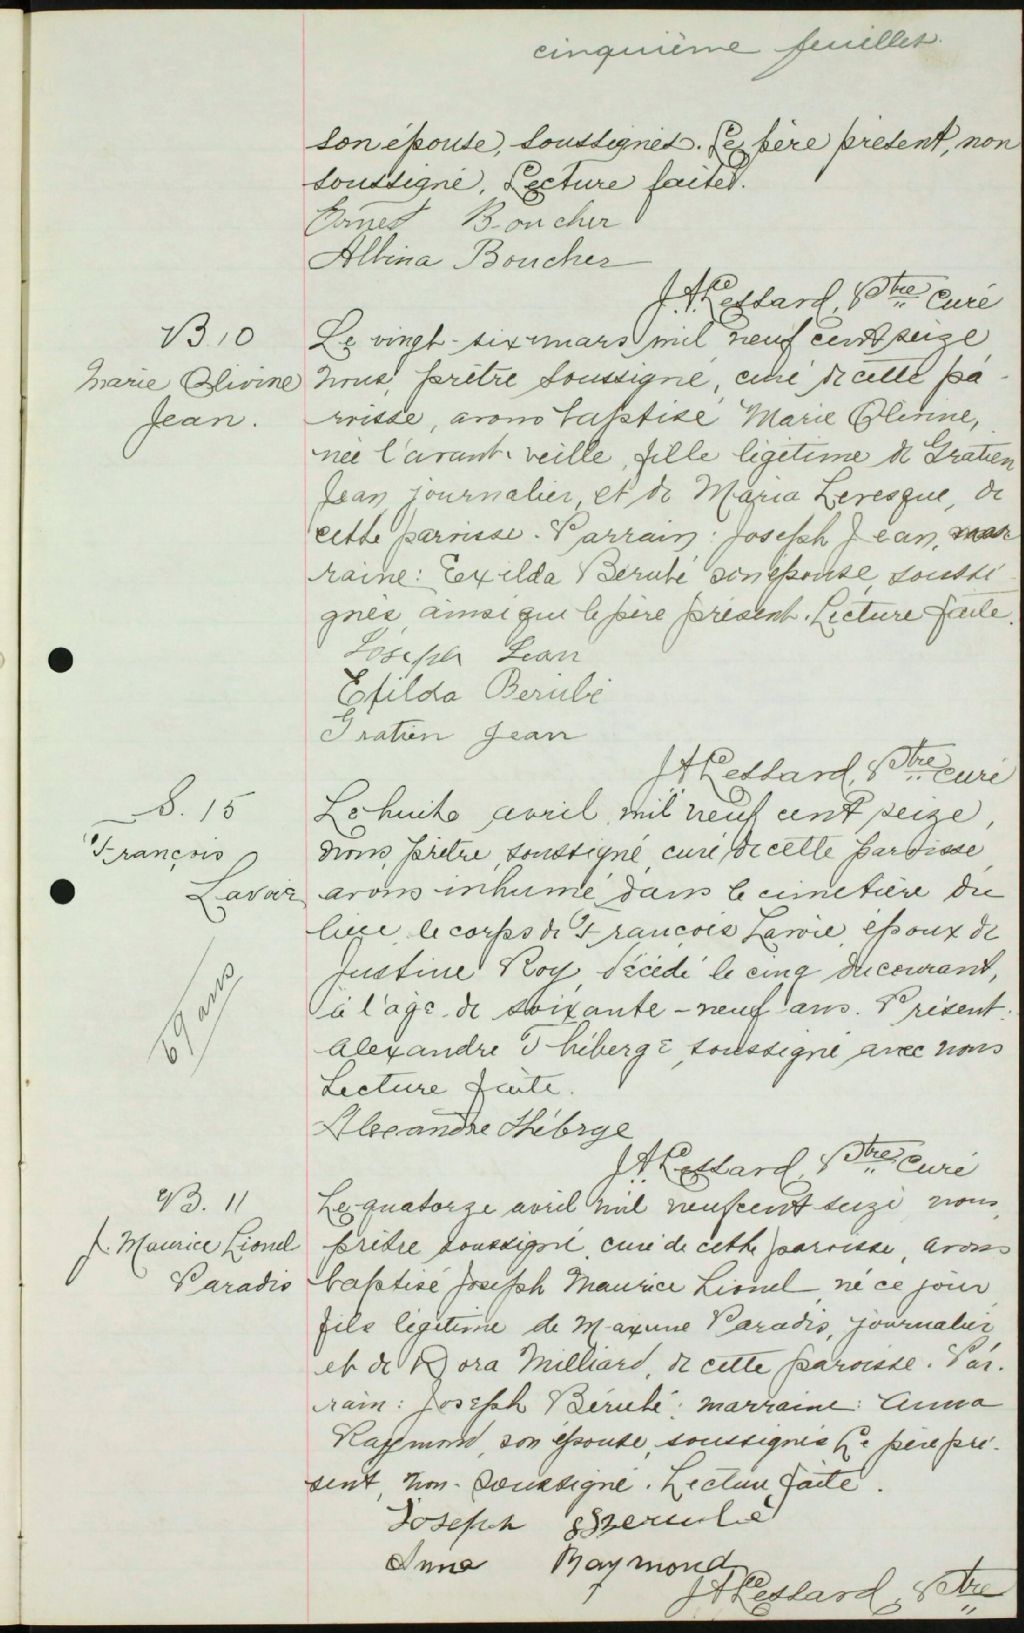 cinquième feuillet.
son épouse, soussignés. Le père présent, non
soussigné. Lecture faite.
Ernest Boucher
Albina Boucher
J. A. Lessard, Ptre Curé
B 10
Marie Olivine
Jean.
Le vingt-six mars mil neuf cent seize
nous, prêtre soussigné, curé de cette pa-
roisse, avons baptisé Marie Olivine,
née l'avant-veille, fille légitime de Gratien
Jean, journalier, et de Maria Levesque, de
cette paroisse. Parrain: Joseph Jean, mar
raine: Exilda Bérubé son épouse, soussi-
gnés ainsi que le père présent. Lecture faite.
Joseph Jean
Exilda Berubé
Gratien Jean
J A Lessard, Ptre curé
S. 15
François
Lavoie
69 ans
Le huit avril mil neuf cent seize,
nous, prêtre soussigné, curé de cette paroisse
avons inhumé dans le cimetière du
lieu le corps de François Lavoie, époux de
Justine Roy, décédé le cinq du courant,
à l'âge de soixante-neuf ans. Présent:
Alexandre Théberge, soussigné avec nous
Lecture faite.
Alexandre Théberge
J. A. Lessard, Ptre Curé
B. 11
J. Maurice Lionel
Paradis
Le quatorze avril mil neuf cent seize nous,
prêtre soussigné, curé de cette paroisse, avons
baptisé Joseph Maurice Lionel, né ce jour,
fils légitime de Maxime Paradis, journalier
et de Dora Milliard, de cette paroisse. Par-
rain: Joseph Bérubé; marraine: Anna
Raymond, son épouse, soussignés. Le père pré-
sent, non-soussigné. Lecture faite.
Joseph Berubé
Anna Raymond
J A Lessard, Ptre